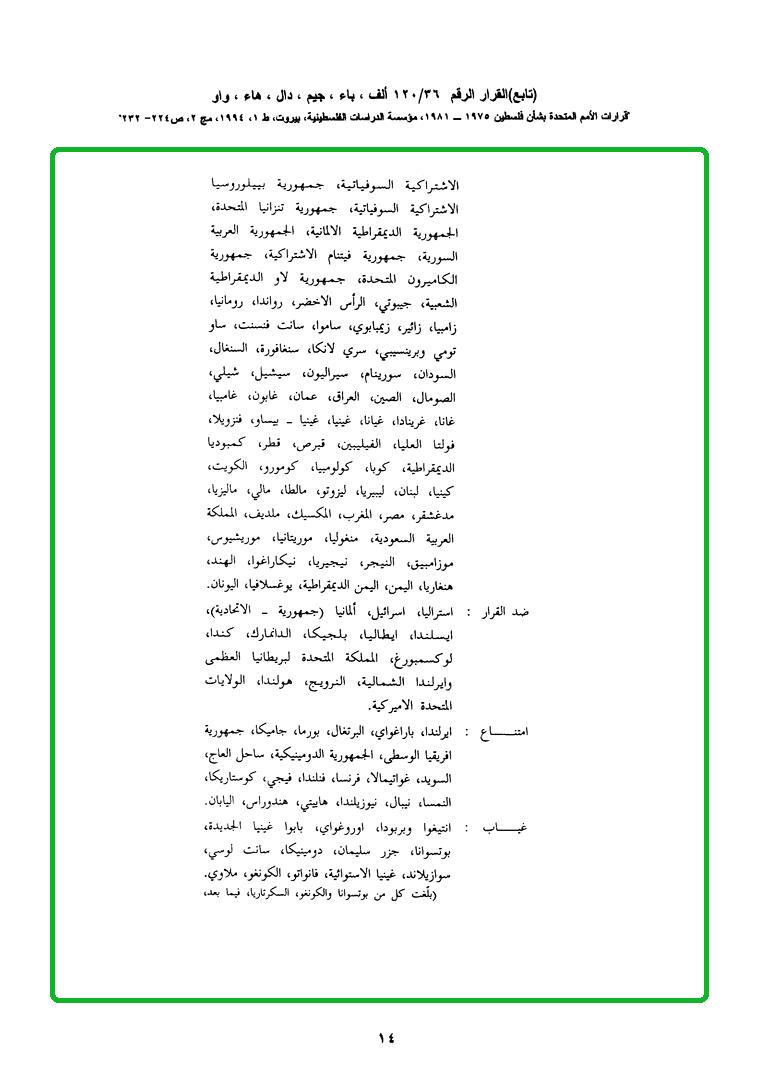 (تابع)القرار الرقم ١٢٠/٣٦ ألف ، باء ، جيم ، دال ، هاء ، واو
قرارات الأمم المتحدة بشأن فلسطين ١٩٧٥ – ١٩٨١، مؤسسة الدراسات الفلسطينية، بيروت، ط ١، ١٩٩٤، مج ٢، ص٢٢٤- ٢٣٢
الاشتراكية السوفياتية، جمهورية بييلوروسيا
الاشتراكية السوفياتية، جمهورية تنزانيا المتحدة،
الجمهورية الديمقراطية الالمانية، الجمهورية العربية
السورية، جمهورية فيتنام الاشتراكية، جمهورية
الكاميرون المتحدة، جمهورية لاو الديمقراطية
الشعبية، جيبوتي، الرأس الاخضر، رواندا، رومانيا،
زامبيا، زائير، زيمبابوي، ساموا، سانت فنسنت، ساو
تومي وبرينسيبي، سري لانكا، سنغافورة، السنغال،
السودان، سورينام، سيراليون، سيشيل، شيلي،
الصومال، الصين، العراق، عمان، غابون، غامبيا،
غانا، غرينادا، غيانا، غينيا، غينيا ـ بيساو، فنزويلا،
فولتا العليا، الفيليبين، قبرص، قطر، كمبوديا
الديمقراطية، كوبا، كولومبيا، كومورو، الكويت،
كينيا، لبنان، ليبيريا، ليزوتو، مالطا، مالي، ماليزيا،
مدغشقر، مصر، المغرب، المكسيك، ملديف، المملكة
العربية السعودية، منغوليا، موريتانيا، موريشيوس،
موزامبيق، النيجر، نيجيريا، نيكاراغوا، الهند،
هنغاريا، اليمن، اليمن الديمقراطية، يوغسلافيا، اليونان.
ضد القرار : استراليا، اسرائيل، ألمانيا (جمهورية ـ الاتحادية)،
ايسلندا، ايطاليا، بلجيكا، الدانمارك، كندا،
لوكسمبورغ، المملكة المتحدة لبريطانيا العظمى
وايرلندا الشمالية، النرويج، هولندا، الولايات
المتحدة الاميركية.
امتنـــاع : ايرلندا، باراغواي، البرتغال، بورما، جاميكا، جمهورية
افريقيا الوسطى، الجمهورية الدومينيكية، ساحل العاج،
السويد، غواتيمالا، فرنسا، فنلندا، فيجي، كوستاريكا،
النمسا، نيبال، نيوزيلندا، هاييتي، هندوراس، اليابان.
غيـــاب : انتيغوا وبربودا، اوروغواي، بابوا غينيا الجديدة،
بوتسوانا، جزر سليمان، دومينيكا، سانت لوسي،
سوازيلاند، غينيا الاستوائية، فانواتو، الكونغو، ملاوي.
(بلّغت كل من بوتسوانا والكونغو، السكرتاريا، فيما بعد،
١٤